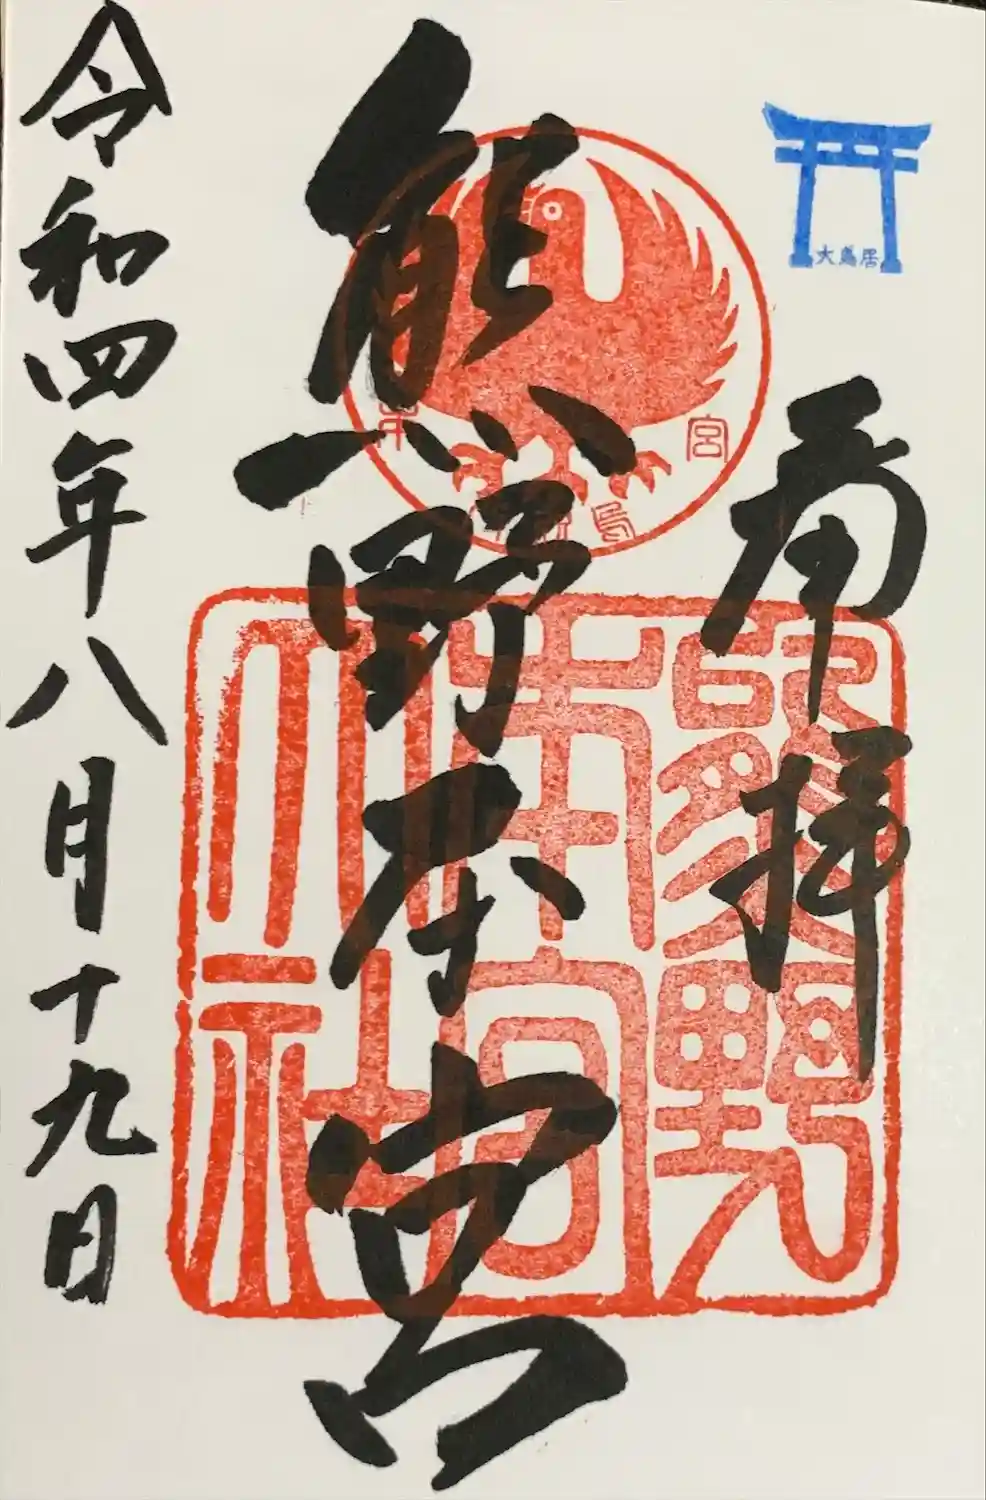 大鳥居
奉拝
熊野本宮
熊野
本宮
大社
令和四年八月十九日